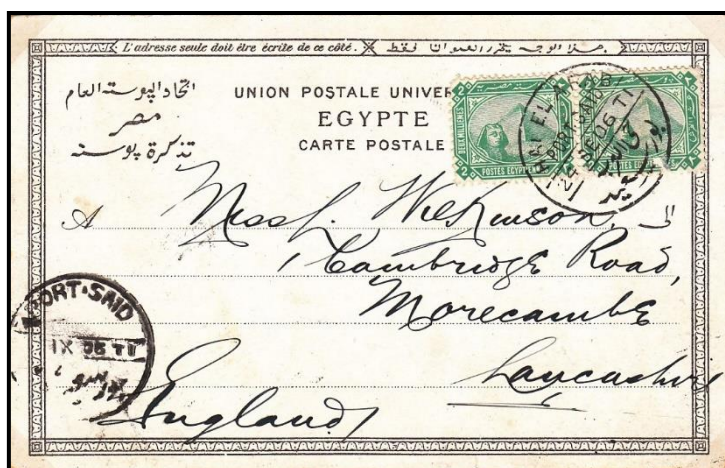 L'adresse seule doit être écrite de ce côté. هذا الوجه يحرر العنوان فقط
اتحاد البوسته العام
مصر
تذكرة بوسته
UNION POSTALE UNIVER
EGYPTE
CARTE POSTALE
POSTES EGYPTIENNES
2
PORT SAID
06 T I
بور سعيد
A Miss L. Wilkinson,
1 Cambridge Road,
Morecambe
Lancashire
England
PORT-SAID
IX 06 T I
بور سعيد